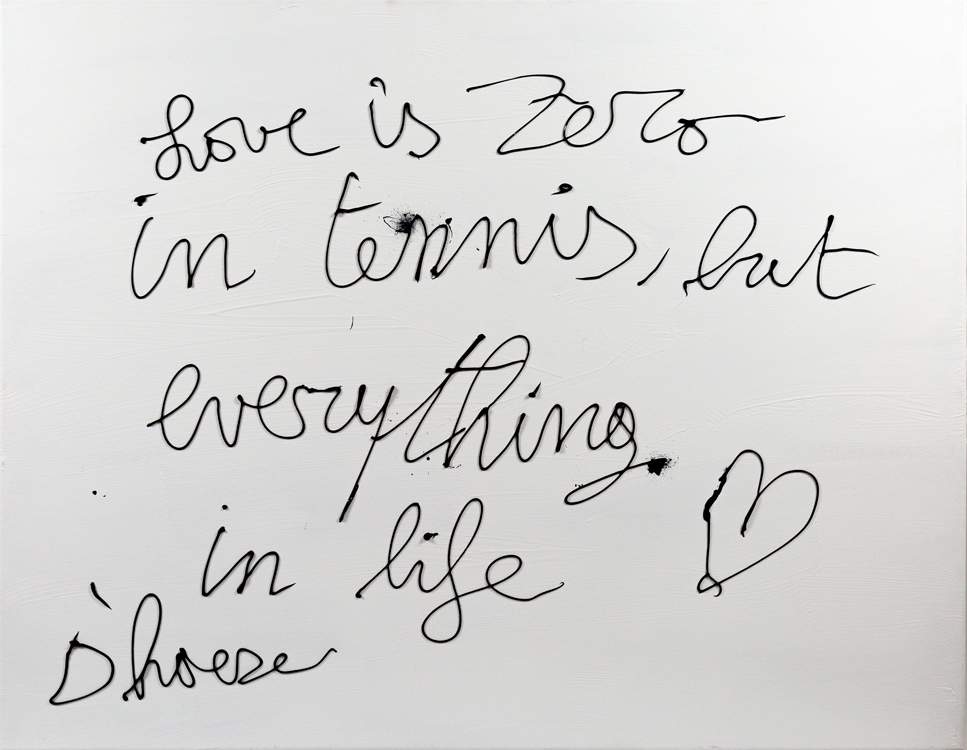 Love is Zero
in tennis, but
everything
in life
D'hoese